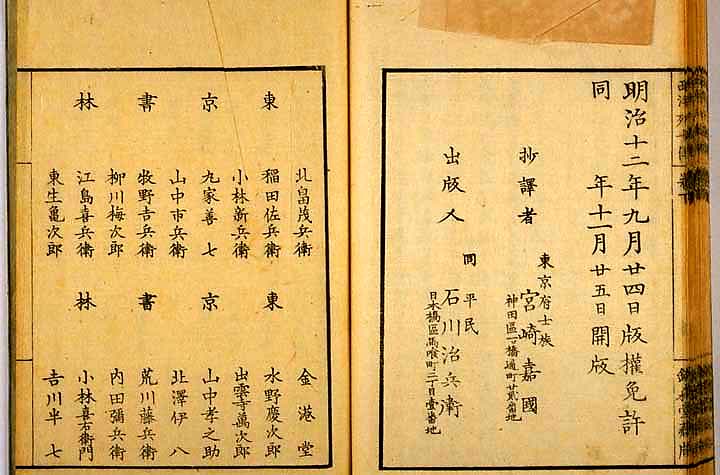 明治十二年九月廿四日版權免許
同年十一月廿五日開版
抄譯者
東京府士族
宮崎嘉國
神田區一ツ橋通町廿貳番地
出版人
同平民
石川治兵衛
日本橋區馬喰町三丁目壹番地
東京書林
北畠茂兵衛
稲田佐兵衛
小林新兵衛
九家善七
山中市兵衛
牧野吉兵衛
柳川梅次郎
江島喜兵衛
東生亀次郎
東京書林
金港堂
水野慶次郎
出雲寺萬次郎
山中孝之助
北澤伊八
荒川藤兵衛
内田彌兵衛
小林喜右衛門
吉川半七